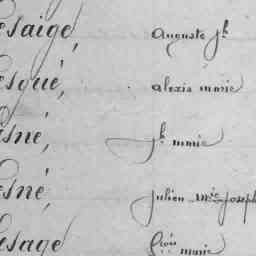 esaige, Auguste Jh
esqué, alexis marie
esné, Jh marie
esné, Julien Mie Joseph
esage fçois marie